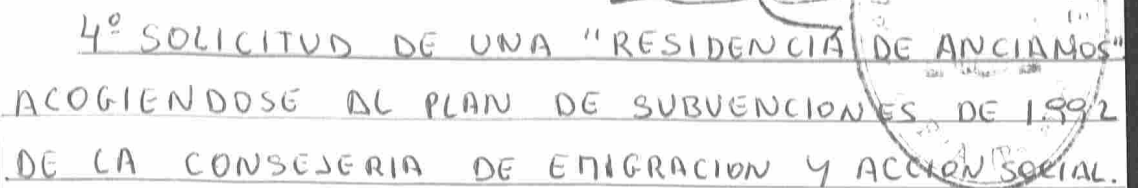 4º SOLICITUD DE UNA "RESIDENCIA DE ANCIANOS"
ACOGIENDOSE AL PLAN DE SUBVENCIONES DE 1.992
DE LA CONSEJERIA DE EMIGRACION Y ACCION SOCIAL.